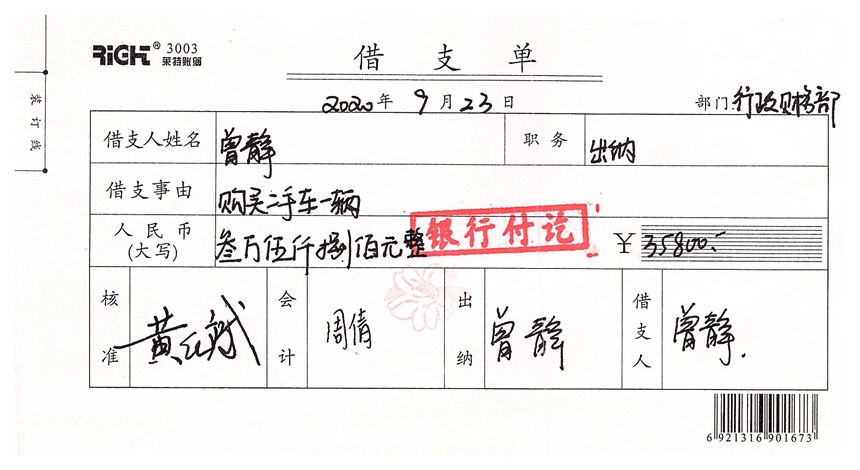 RiGHT® 3003
莱特账簿
借支单
2020年 9月23日
部门:行政财务部
装订线
借支人姓名 曾静 职务 出纳
借支事由 购买二手车一辆
人民币(大写) 叁万伍仟捌佰元整 ¥ 35800.-
银行付讫
核准 会计 周倩 出纳 曾静 借支人 曾静.
6 921316 901673